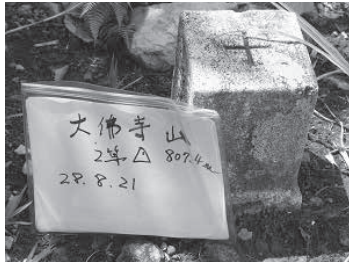 大佛寺山
2等△ 807.4m
28.8.21